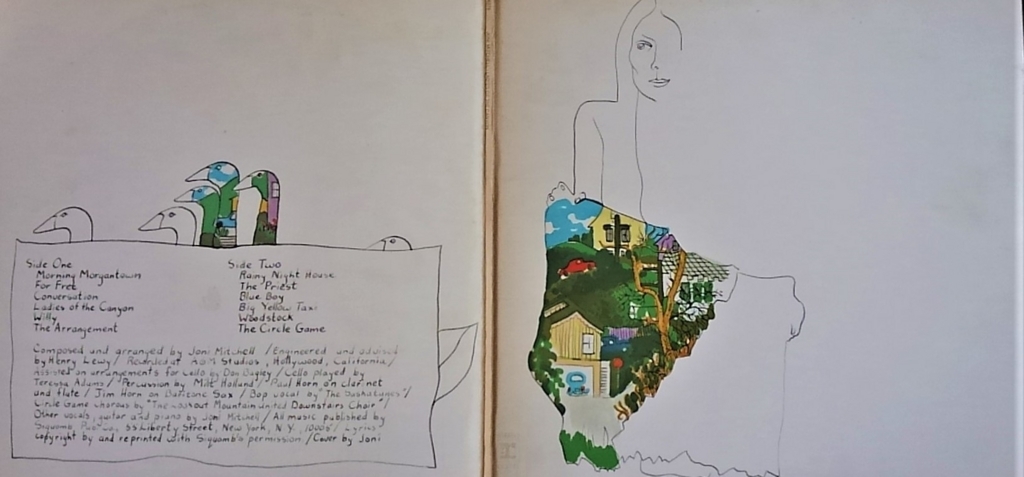 Side One
Morning Morgantown
For Free
Conversation
Ladies of the Canyon
Willy
The Arrangement
Side Two
Rainy Night House
The Priest
Blue Boy
Big Yellow Taxi
Woodstock
The Circle Game
Composed and arranged by Joni Mitchell / Engineered and advised
by Henry Lewy / Recorded at A&M Studios, Hollywood, California /
Assisted on arrangements for cello by Don Bagley / Cello played by
Teressa Adams / Percussion by Milt Holland / Paul Horn on clarinet
and flute / Jim Horn on Baritone Sax / Bop vocal by "The Saskatunes" /
Circle Game chorus by "The Lookout Mountain United Downstairs Choir"
Other vocals, guitar and piano by Joni Mitchell / All music published by
Siquomb 55 Liberty Street, New York, N.Y. Lyrics
copyright by and reprinted with Siquomb's permission / Cover by Joni